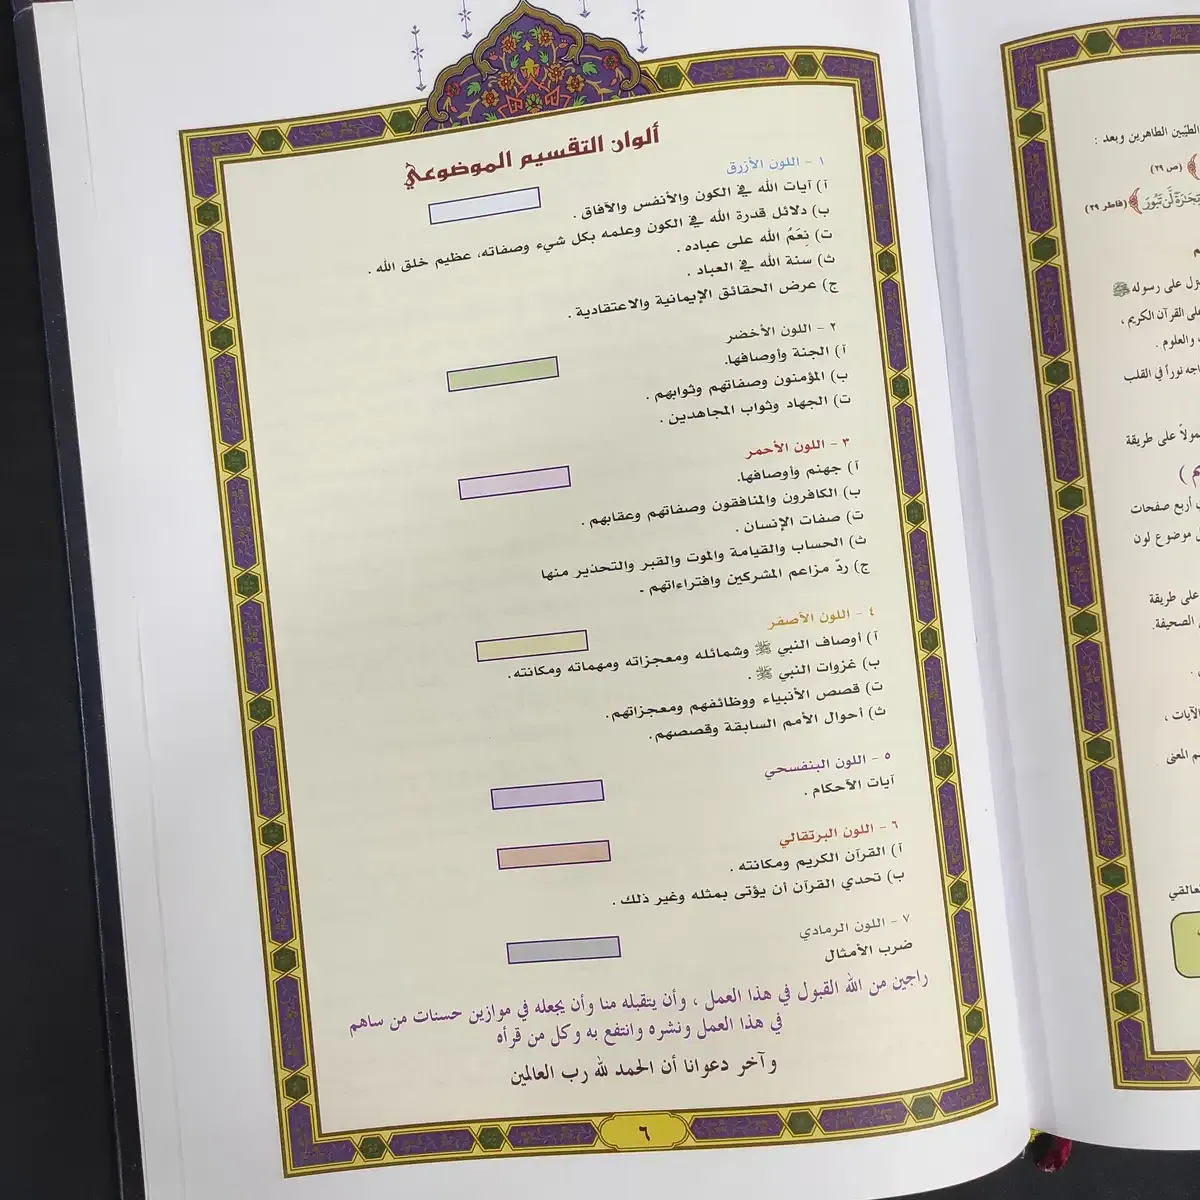 ألوان التقسيم الموضوعي
١ - اللون الأزرق
آ) آيات الله في الكون والأنفس والآفاق .
ب) دلائل قدرة الله في الكون وعلمه بكل شيء وصفاته، عظيم خلق الله .
ت) نِعَمُ الله على عباده .
ث) سنة الله في العباد .
ج) عرض الحقائق الإيمانية والاعتقادية .
٢ - اللون الأخضر
آ) الجنة وأوصافها.
ب) المؤمنون وصفاتهم وثوابهم .
ت) الجهاد وثواب المجاهدين .
٣ - اللون الأحمر
آ) جهنم وأوصافها.
ب) الكافرون والمنافقون وصفاتهم وعقابهم .
ت) صفات الإنسان .
ث) الحساب والقيامة والموت والقبر والتحذير منها
ج) ردّ مزاعم المشركين وافتراءاتهم .
٤ - اللون الأصفر
آ) أوصاف النبي ﷺ وشمائله ومعجزاته ومهماته ومكانته.
ب) غزوات النبي ﷺ .
ت) قصص الأنبياء ووظائفهم ومعجزاتهم.
ث) أحوال الأمم السابقة وقصصهم.
٥ - اللون البنفسحي
آيات الأحكام .
٦ - اللون البرتقالي
آ) القرآن الكريم ومكانته .
ب) تحدي القرآن أن يؤتى بمثله وغير ذلك .
٧ - اللون الرمادي
ضرب الأمثال
راجين من الله القبول في هذا العمل ، وأن يتقبله منا وأن يجعله في موازين حسنات من ساهم
في هذا العمل ونشره وانتفع به وكل من قرأه
وآخر دعوانا أن الحمد لله رب العالمين
٦
الطيّبين الطاهرين وبعد :
(ص ٢٩)
تِجَارَةً لَّن تَبُورَ (فاطر ٢٩)
على رسوله ﷺ
على القرآن الكريم ،
والعلوم .
نوراً في القلب
على طريقة
أربع صفحات
موضوع لون
على طريقة
الصحيفة.
الآيات ،
المعنى